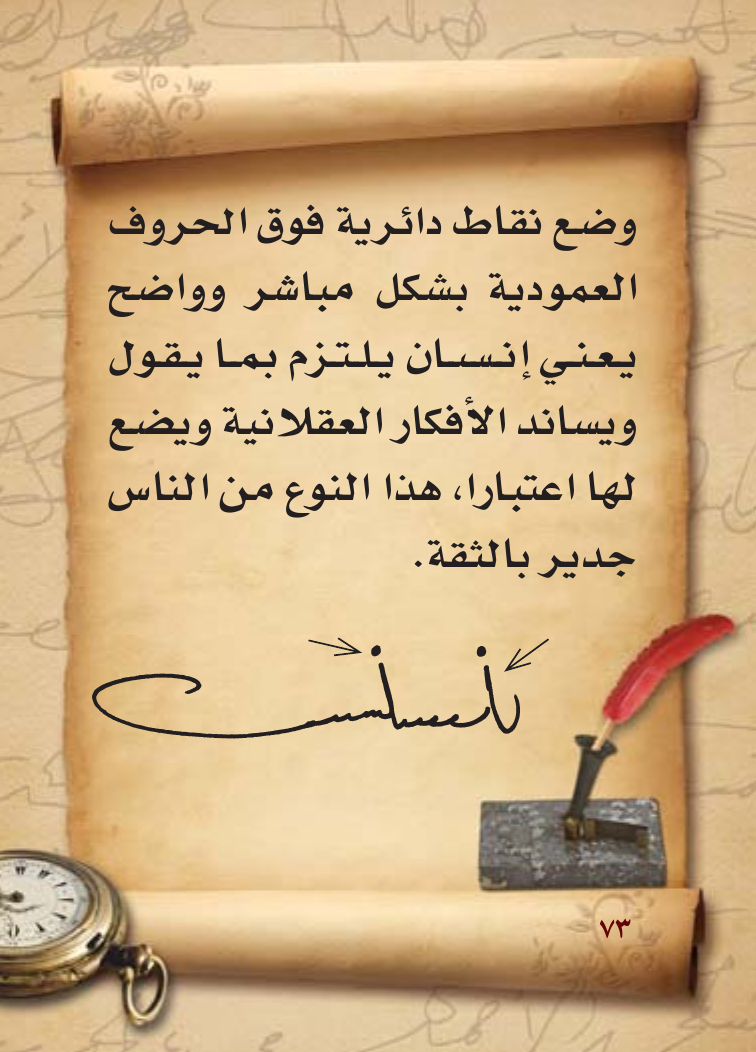 وضع نقاط دائرية فوق الحروف
العمودية بشكل مباشر وواضح
يعني إنسان يلتزم بما يقول
ويساند الأفكار العقلانية ويضع
لها اعتبارا، هذا النوع من الناس
جدير بالثقة.
٧٣